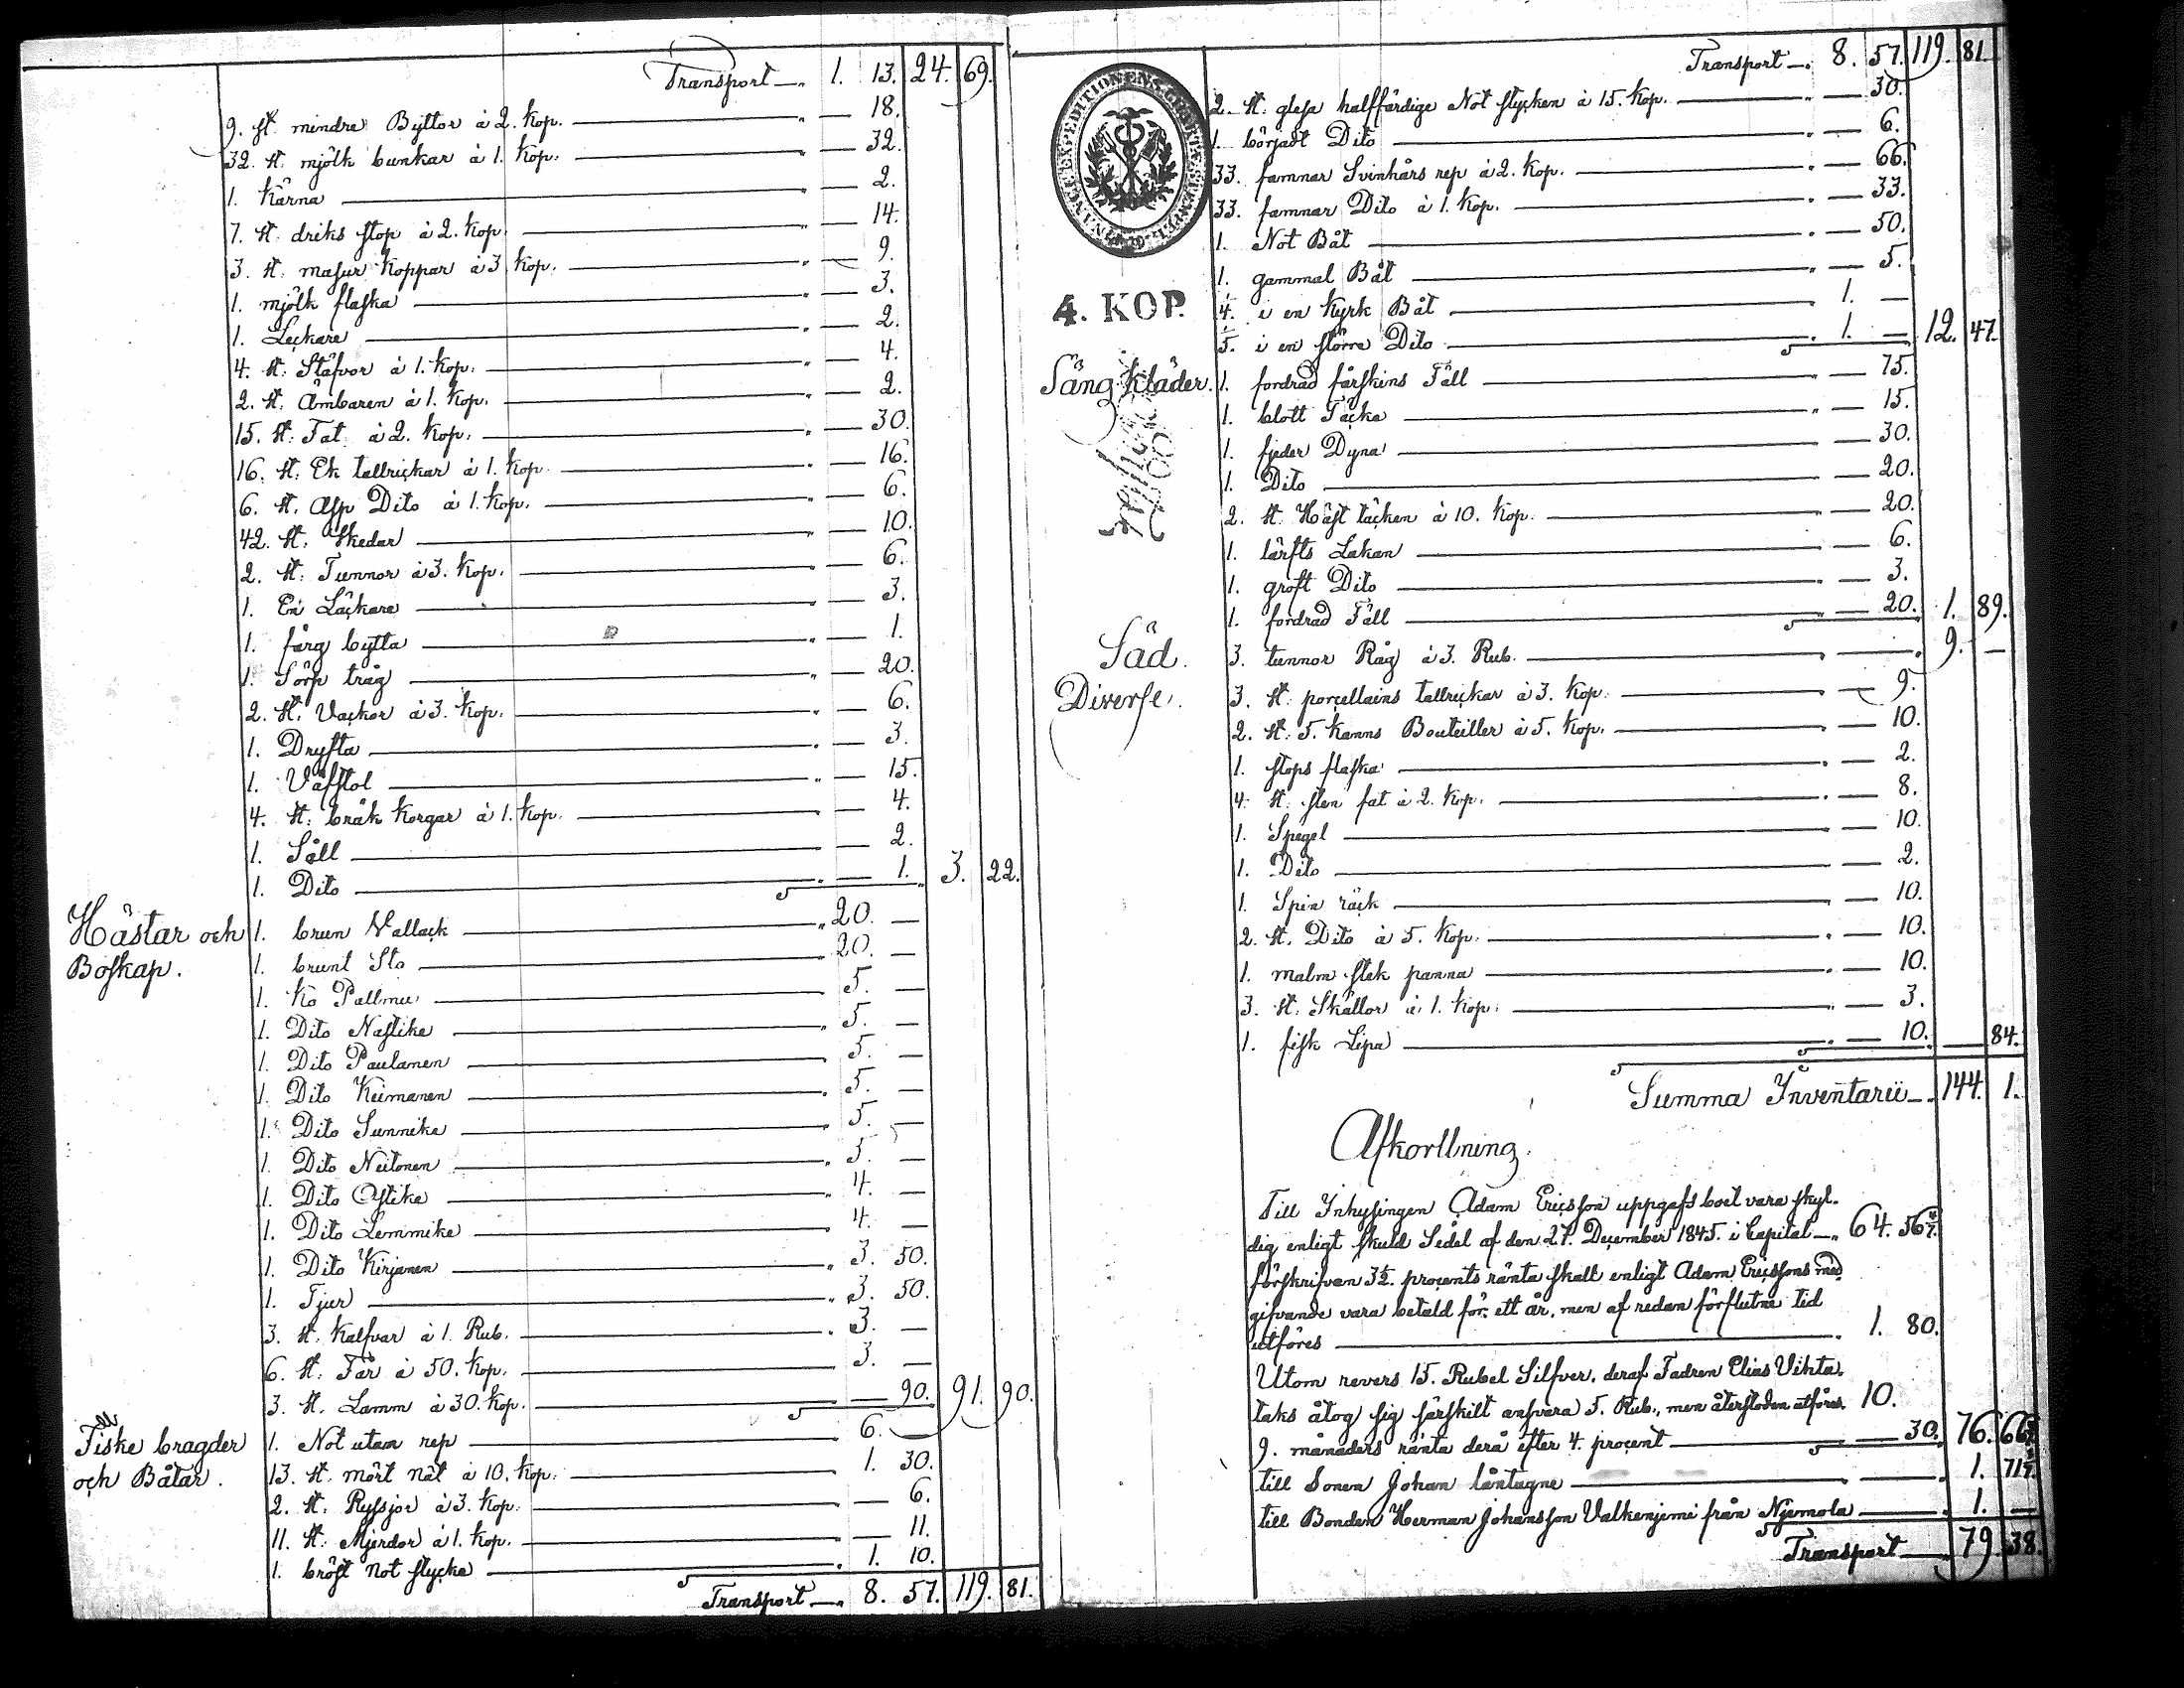 Transport — 1. 13. 24. 69.
9. st. mindre Byttor à 2. Kop. — 18.
32. st. mjölk bunkar à 1. Kop. — 32.
1. Kärna — 2.
7. st. driks stop à 2. Kop. — 14.
3. st. masur Koppar à 3. Kop. — 9.
1. mjölk flaska — 3.
1. Leckare — 2.
4. st. Stäfvor à 1. Kop. — 4.
2. st. Ämbaren à 1. Kop. — 2.
15. st. Fat à 2. Kop. — 30.
16. st. Ek tallrickar à 1. Kop. — 16.
6. st. Asp Dito à 1. Kop. — 6.
42. st. Skedar — 10.
2. st. Tunnor à 3. Kop. — 6.
1. En Läckare — 3.
1. färg bytta — 1.
1. Sörp tråg — 20.
2. st. Vackor à 3. Kop. — 6.
1. Dryfta — 3.
1. Väfstol — 15.
4. st. bråk Korgar à 1. Kop. — 4.
1. Såll — 2.
1. Dito — 1. 3. 22.
Hästar och 1. brun Wallack — 20. —
Boskap. 1. brunt Sto — 20. —
1. Ko Pallmu — 5. —
1. Dito Nastike — 5. —
1. Dito Paulanen — 5. —
1. Dito Keimanen — 5. —
1. Dito Sunnike — 5. —
1. Dito Neitonen — 5. —
1. Dito Ostike — 4. —
1. Dito Lemmike — 4. —
1. Dito Kirjanen — 3. 50.
1. Tjur — 3. 50.
3. st. Kalfvar à 1. Rub. — 3. —
6. st. Får à 50. Kop. — 3. —
3. st. Lamm à 30. Kop. — 90. 91. 90.
Fiske bragder 1. Not utan rep — 6. —
och Båtar. 13. st. mört nät à 10. Kop. — 1. 30.
2. st. Ryssjor à 3. Kop. — 6.
11. st. Mjerdor à 1. Kop. — 11.
1. bröst Not stycke — 1. 10.
Transport — 8. 57. 119. 81.
Transport — 8. 57. 119. 81.
2. st. glesa halffärdige Not stycken à 15. Kop. — 30.
1. börjadt Dito — 6.
33. famnar Svinhårs rep à 2. Kop. — 66.
33. famnar Dito à 1. Kop. — 33.
1. Not Båt — 50.
1. gammal Båt — 5.
4. KOP.
1/4. i en Kyrk Båt — 1. —
1/5. i en större Dito — 1. — 12. 47.
Säng Kläder. 1. fordrad fårskins Fäll — 75.
1. blott Täcke — 15.
1. fjeder Dyna — 30.
1. Dito — 20.
2. st. Häst täcken à 10. Kop. — 20.
1. lärfts Lakan — 6.
1. groft Dito — 3.
1. fordrad Fäll — 20. 1. 89.
Säd. 3. tunnor Råg à 3. Rub. — 9. —
Diverse. 3. st. porcellains tallrickar à 3. Kop. — 9.
2. st. 5. Kanns Bouteiller à 5. Kop. — 10.
1. stops flaska — 2.
4. st. sten fat à 2. Kop. — 8.
1. Spegel — 10.
1. Dito — 2.
1. Spin räck — 10.
2. st. Dito à 5. Kop. — 10.
1. malm stek panna — 10.
3. st. Skållor à 1. Kop. — 3.
1. fisk Lipa — 10. — 84.
Summa Inventarii — 144. 1.
Afkorttning.
Till Inhysingen Adam Ericsson uppgafs boet vara skyl-
dig enligt skuld Sedel af den 27. December 1845. i Capital — 64. 56 4/7.
förskrifven 3½. procents ränta skall enligt Adam Ericssons med
gifvande vara betald för ett år, men af redan förflutne tid
utföres — 1. 80.
Utom revers 15. Rubel Silfver, deraf Fadren Elias Vihta-
taks åtog sig särskilt ansvara 5. Rub., men återstoden utföres 10.
9. månaders ränta derå efter 4. procent — 30. 76. 66
till Sonen Johan låntagne — 1. 71
till Bonden Herman Johansson Valkenjemi från Njemola — 1. —
Transport — 79. 38.